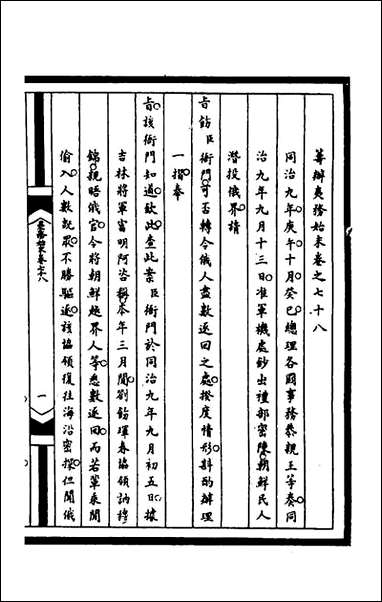 籌辦夷務始末卷之七十八
同治九年庚午十月癸巳總理各國事務恭親王等奏同
治九年九月十三日准軍機處鈔出禮部密陳朝鮮民人
潛投俄界情
一摺奉
旨飭臣衙門可否轉令俄人盡數逐回之處揆度情形斟酌辦理
旨該衙門知道欽此查此案臣衙門於同治九年九月初五日據
吉林將軍富明阿咨稱本年三月間劄飭琿春協領訥穆
錦親晤俄官令將朝鮮越界人等悉數逐回而若輩乘間
偷入人數既眾不勝驅逐該協領復往海沿密探但聞俄
一